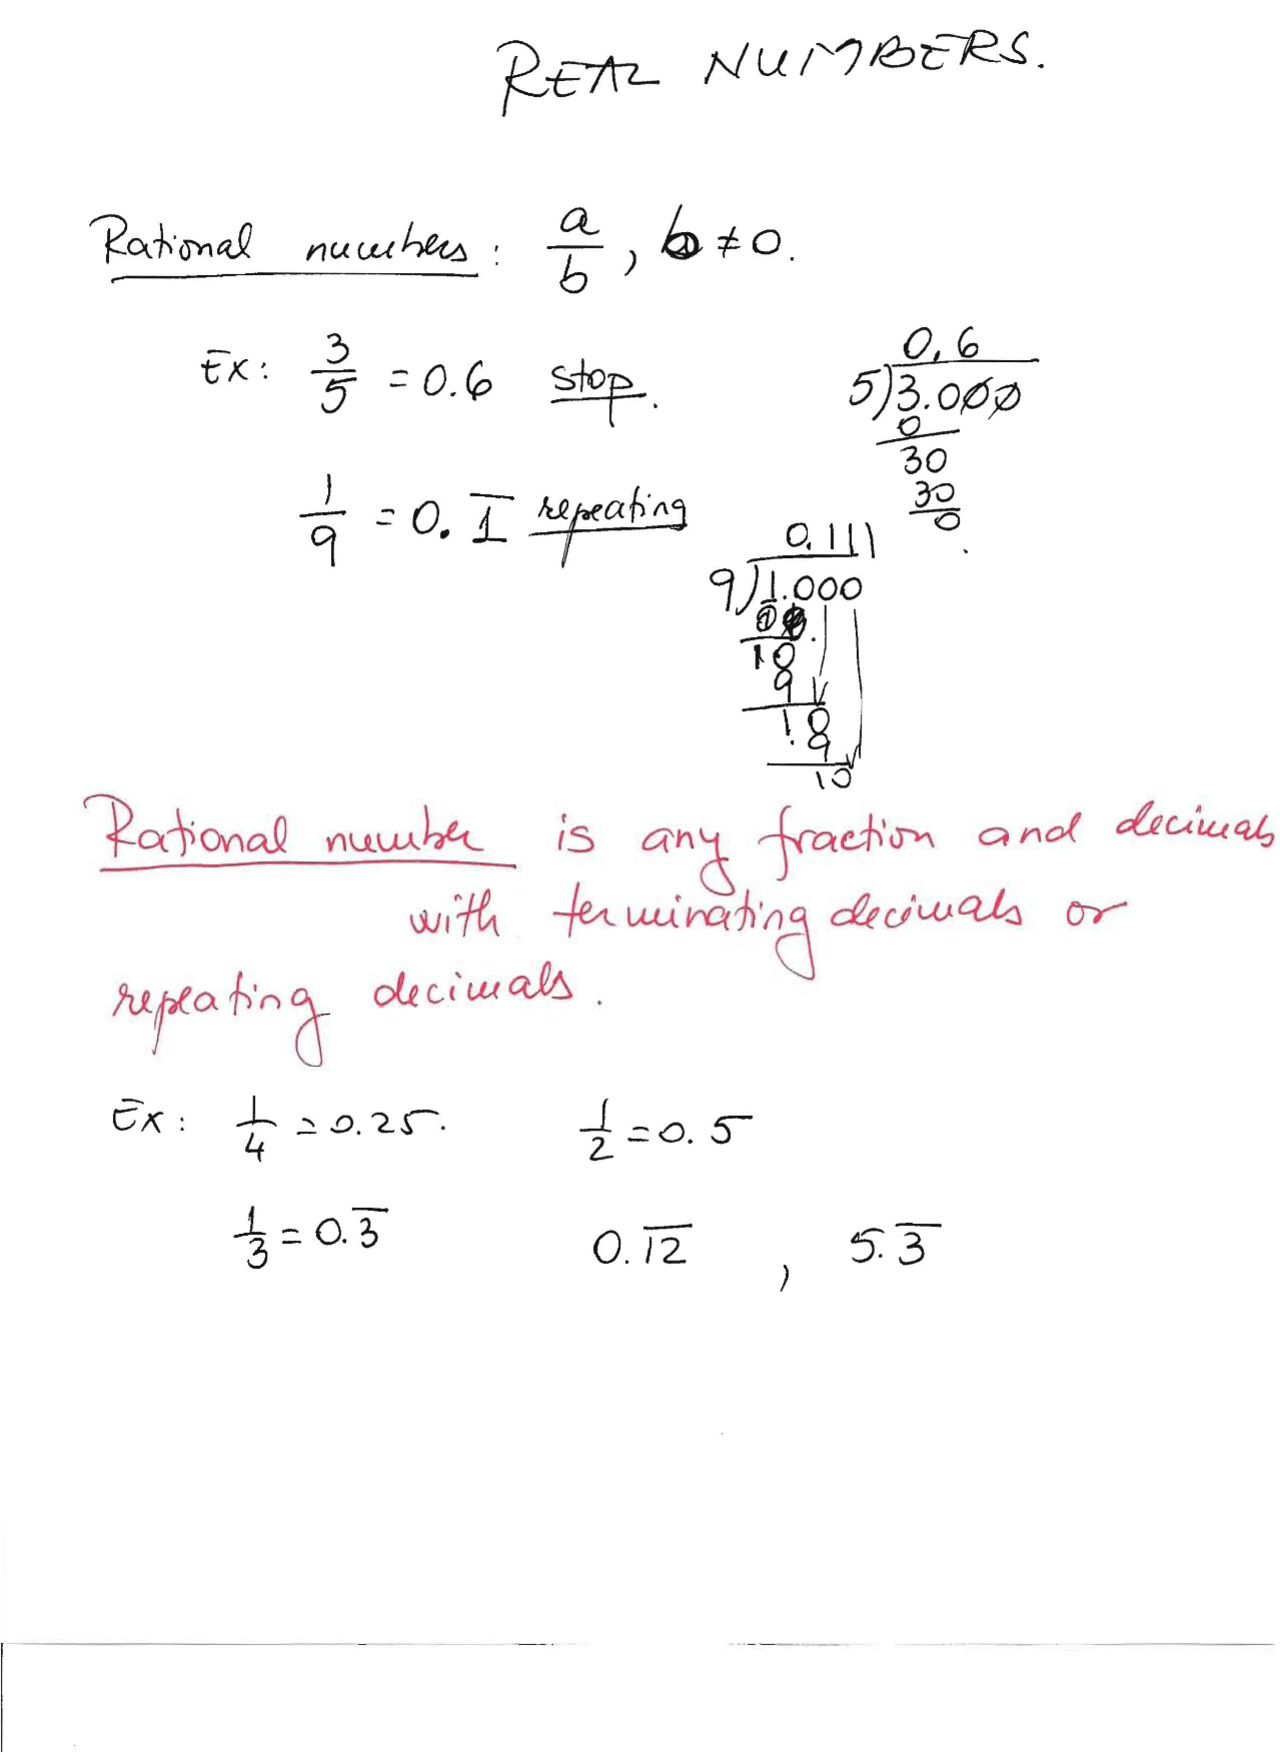 REAL NUMBERS.
Rational numbers: a/b, b ≠ 0.
Ex: 3/5 = 0.6 stop.
0.6
5)3.000
0
30
30
0
1/9 = 0.1̅ repeating
0.111
9)1.000
10
9
10
9
10
Rational number is any fraction and decimals
with terminating decimals or
repeating decimals.
Ex: 1/4 = 0.25. 1/2 = 0.5
1/3 = 0.3̅ 0.1̅2̅ , 5.3̅